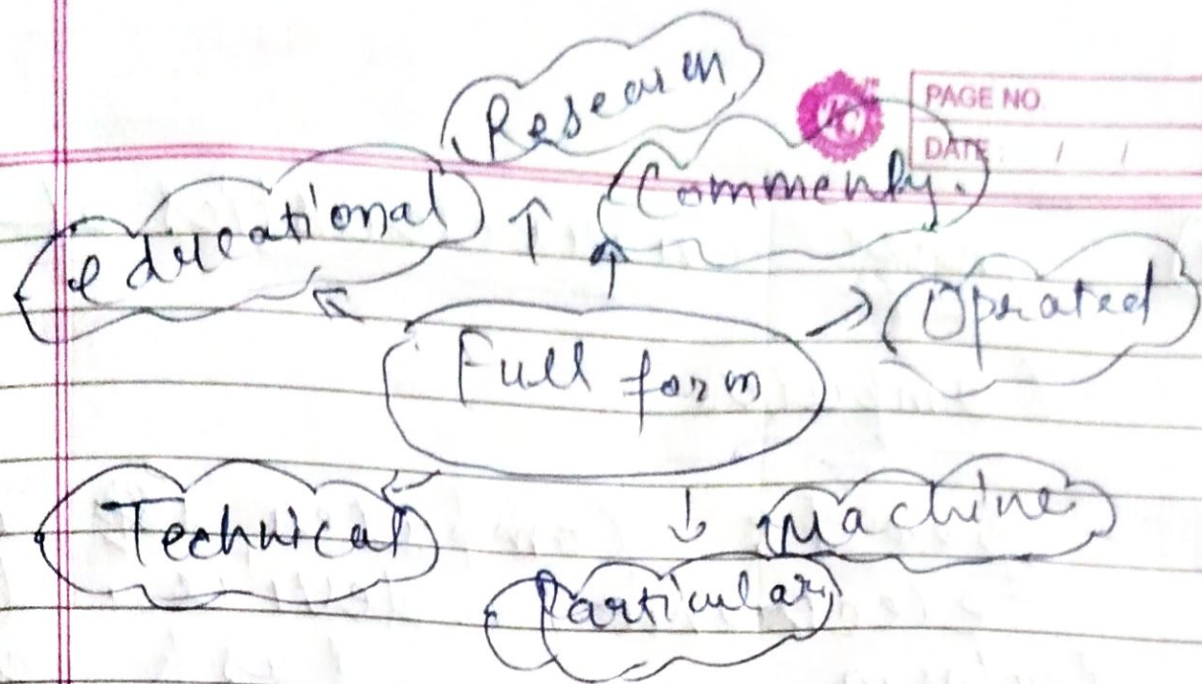 PAGE NO.
DATE: / /
Research
Commenly.
educational
Operated
Full form
Technical
Machine
Particular